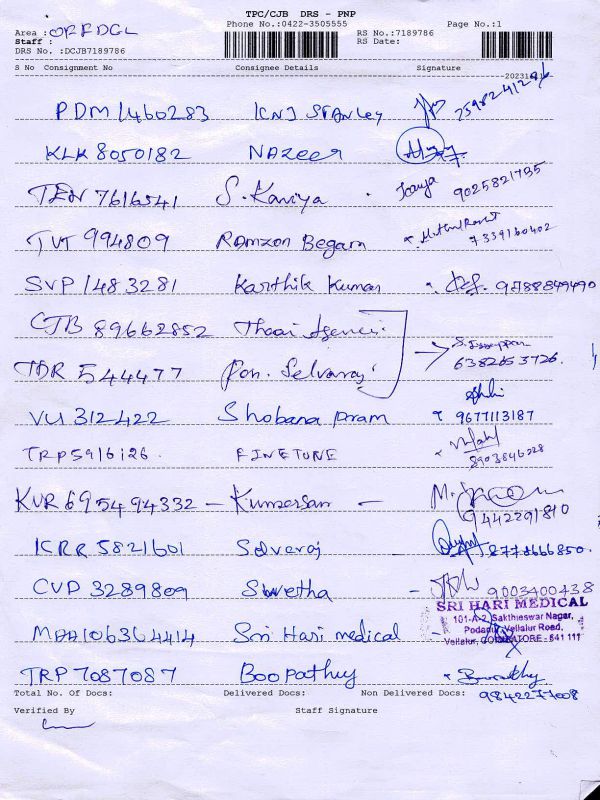 TPC/CJB DRS - PNP
Phone No.:0422-3505555 Page No.:1
Area : ORFDGL RS No.:7189786
Staff : RS Date:
DRS No. :DCJB7189786
S No Consignment No Consignee Details Signature
PDM 1460283 KNJ STANLEY
KLK 8050182 NAZEER
TEN 7616541 S. Kaviya 9025821735
TVT 994809 RAMZON Begam 7339160402
SVP 1483281 Karthik Kumar
CJB 89662852 Thaai Agencies
TDR 544477 Pon. Selvaraj 6382653726.
VU 312422 Shobana pram 9677113187
TRP 5916126. FINETUNE 8903846228
KUR 695494332 - Kumaresan - 9442291810
KRR 5821601 Selveraj
CVP 3289809 Swetha - 9003400438
MAA106364414 Sri Hari medical
SRI HARI MEDICAL
101-A-2, Sakthieswar Nagar,
Podanur, Vellalur Road,
Vellalur, COIMBATORE - 641 111
TRP 7087087 Boopathy 9842277008
Total No. Of Docs: Delivered Docs: Non Delivered Docs:
Verified By Staff Signature